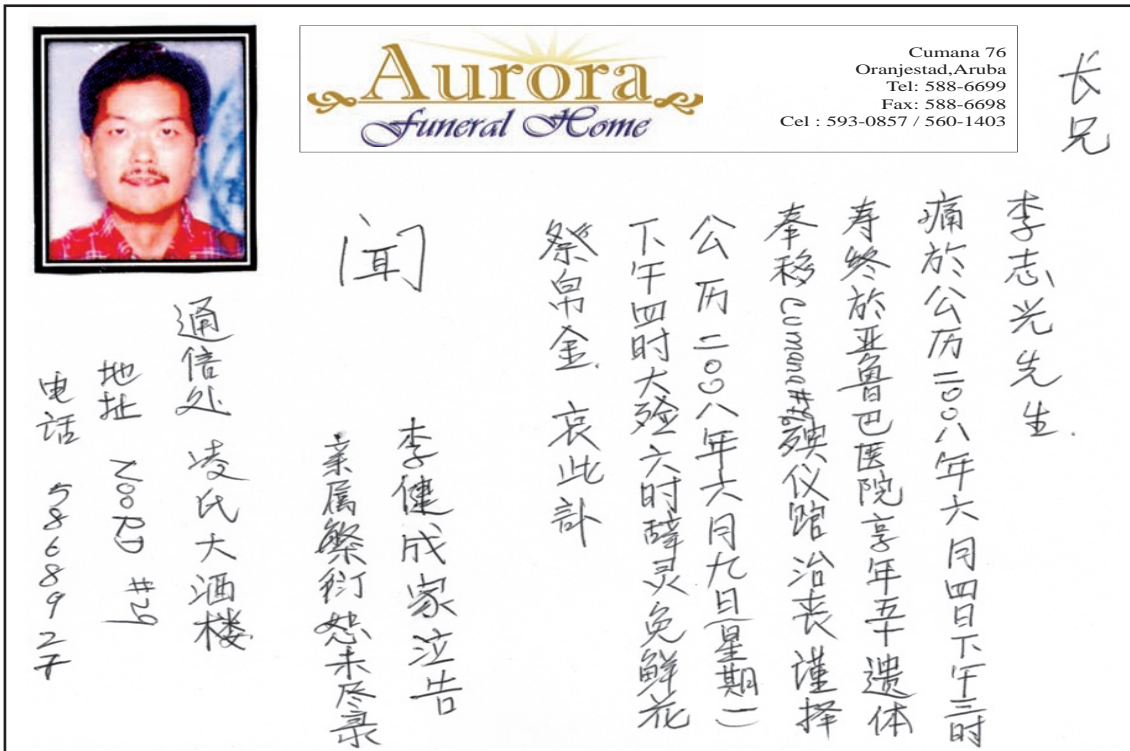 Aurora
Funeral Home
Cumana 76
Oranjestad,Aruba
Tel: 588-6699
Fax: 588-6698
Cel : 593-0857 / 560-1403
长兄
李志光先生.
痛於公历二00八年六月四日下午三时
寿终於亚鲁巴医院享年五十遗体
奉移Cumana#76殡仪馆治丧谨择
公历二00八年六月九日(星期一)
下午四时大殓六时辞灵免鲜花
祭帛金.哀此訃
闻
李健成家泣告
亲属繁衍恕未尽录
通信处 凌氏大酒楼
地址 NooRD #29
电话 586892